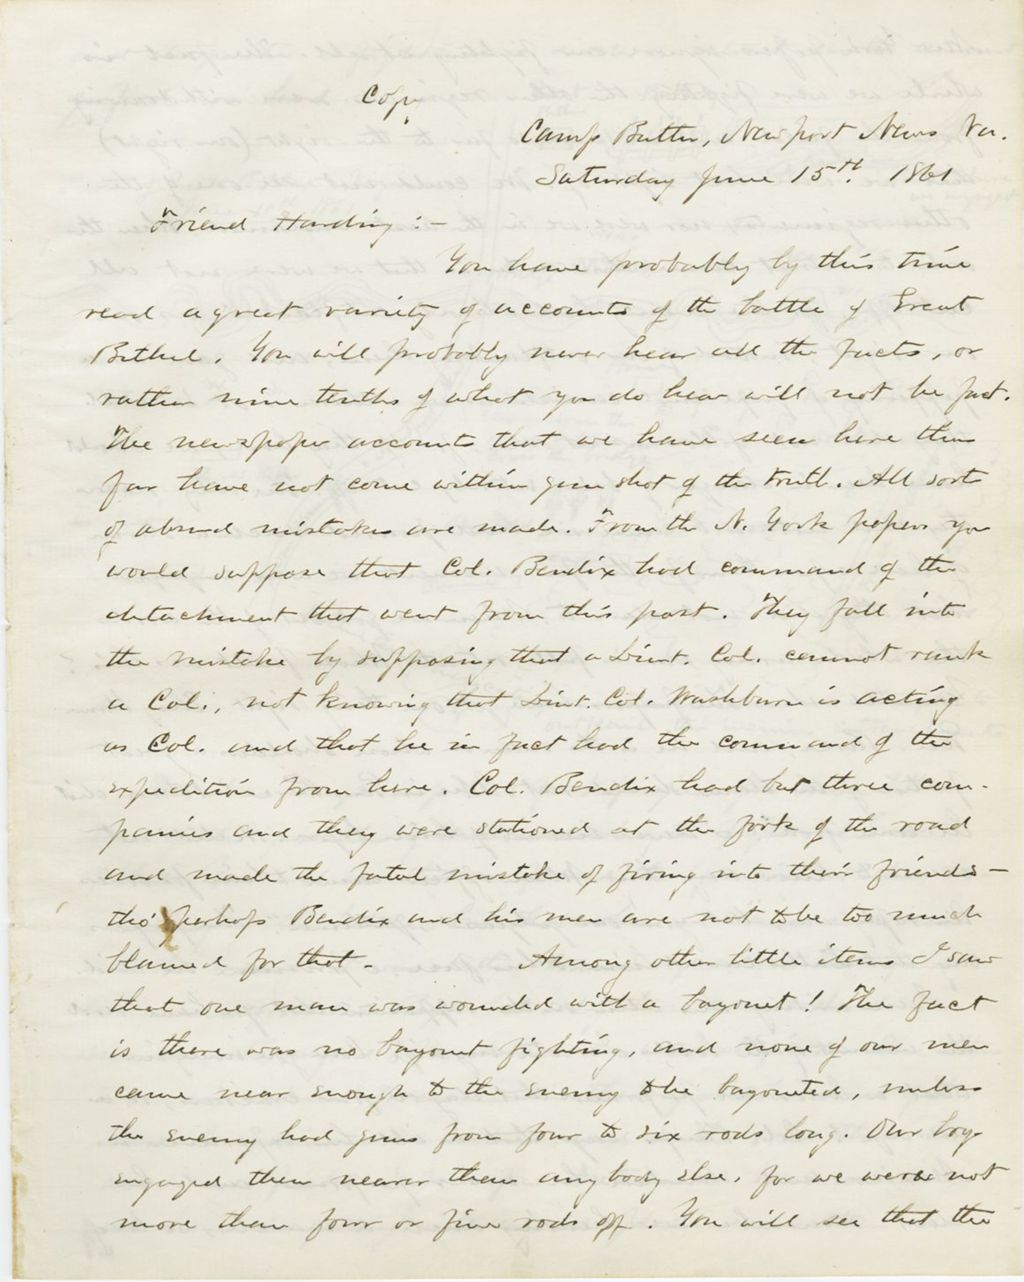 Copy
Camp Butler, Newport News Va.
Saturday June 15th. 1861
Friend Harding :-
You have probably by this time
read a great variety of accounts of the battle of Great
Bethel. You will probably never hear all the facts, or
rather nine tenths of what you do hear will not be fact.
The newspaper accounts that we have seen here thus
far have not come within gun shot of the truth. All sorts
of absurd mistakes are made. From the N. York papers you
would suppose that Col. Bendix had command of the
detachment that went from this post. They fall into
the mistake by supposing that a Lieut. Col. cannot rank
a Col., not knowing that Lieut. Col. Washburn is acting
as Col. and that he in fact had the command of the
expedition from here. Col. Bendix had but three com-
panies and they were stationed at the fork of the road
and made the fatal mistake of firing into their friends -
tho' perhaps Bendix and his men are not to be too much
blamed for that. Among other little items I saw
that one man was wounded with a bayonet! The fact
is there was no bayonet fighting, and none of our men
came near enough to the enemy to be bayoneted, unless
the enemy had guns from four to six rods long. Our boys
engaged them nearer than any body else, for we were not
more than four or five rods off. You will see that the